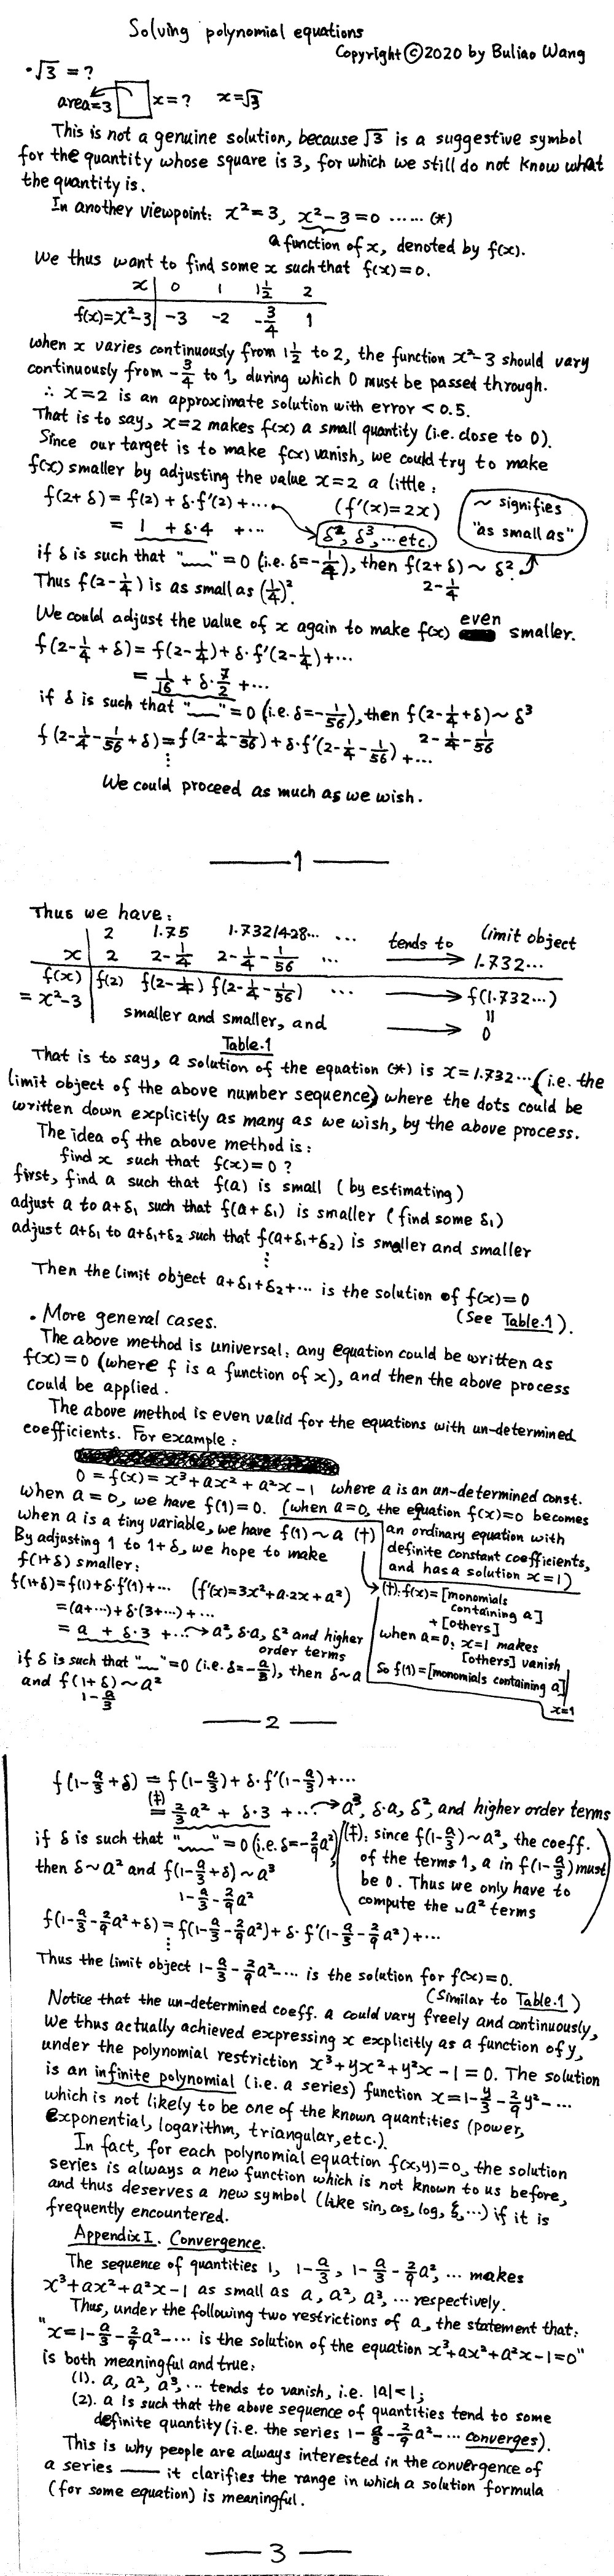 Solving polynomial equations
Copyright ©2020 by Buliao Wang
·√3 = ?
area=3 x=? x=√3
This is not a genuine solution, because √3 is a suggestive symbol
for the quantity whose square is 3, for which we still do not know what
the quantity is.
In another viewpoint: x²=3, x²-3=0 ...... (*)
a function of x, denoted by f(x).
We thus want to find some x such that f(x)=0.
x | 0 1 1½ 2
f(x)=x²-3 | -3 -2 -3/4 1
when x varies continuously from 1½ to 2, the function x²-3 should vary
continuously from -3/4 to 1, during which 0 must be passed through.
∴ x=2 is an approximate solution with error < 0.5.
That is to say, x=2 makes f(x) a small quantity (i.e. close to 0).
Since our target is to make f(x) vanish, we could try to make
f(x) smaller by adjusting the value x=2 a little:
f(2+δ) = f(2) + δ·f'(2) +... (f'(x)=2x)
= 1 + δ·4 +... δ², δ³, ...etc.
~ signifies
"as small as"
if δ is such that "﹏" = 0 (i.e. δ=-1/4), then f(2+δ) ~ δ².
2-1/4
Thus f(2-1/4) is as small as (1/4)².
We could adjust the value of x again to make f(x) even smaller.
f(2-1/4+δ) = f(2-1/4) + δ·f'(2-1/4)+...
= 1/16 + δ·7/2 +...
if δ is such that "﹏" = 0 (i.e. δ=-1/56), then f(2-1/4+δ) ~ δ³
2-1/4-1/56
f(2-1/4-1/56+δ) = f(2-1/4-1/56) + δ·f'(2-1/4-1/56) +...
⋮
We could proceed as much as we wish.
—— 1 ——
Thus we have:
2 1.75 1.7321428... ... tends to limit object
x | 2 2-1/4 2-1/4-1/56 ... → 1.732...
f(x) = x²-3 | f(2) f(2-1/4) f(2-1/4-1/56) ... → f(1.732...)
smaller and smaller, and → 0
Table.1
That is to say, a solution of the equation (*) is x=1.732... (i.e. the
limit object of the above number sequence) where the dots could be
written down explicitly as many as we wish, by the above process.
The idea of the above method is:
find x such that f(x)=0 ?
first, find a such that f(a) is small (by estimating)
adjust a to a+δ₁ such that f(a+δ₁) is smaller (find some δ₁)
adjust a+δ₁ to a+δ₁+δ₂ such that f(a+δ₁+δ₂) is smaller and smaller
⋮
Then the limit object a+δ₁+δ₂+... is the solution of f(x)=0
(See Table.1).
. More general cases.
The above method is universal: any equation could be written as
f(x)=0 (where f is a function of x), and then the above process
could be applied.
The above method is even valid for the equations with un-determined
coefficients. For example:
0 = f(x) = x³+ax²+a²x-1 where a is an un-determined const.
when a=0, we have f(1)=0. (when a=0, the equation f(x)=0 becomes
an ordinary equation with
definite constant coefficients,
and has a solution x=1)
when a is a tiny variable, we have f(1) ~ a (†)
By adjusting 1 to 1+δ, we hope to make
f(1+δ) smaller:
(†): f(x)=[monomials
containing a]
+[others]
when a=0, x=1 makes
[others] vanish
So f(1)=[monomials containing a]|
x=1
f(1+δ)=f(1)+δ·f'(1)+... (f'(x)=3x²+a·2x+a²)
=(a+...)+δ·(3+...)+...
= a + δ·3 +...→ a², δ·a, δ² and higher
order terms
if δ is such that "﹏"=0 (i.e. δ=-a/3), then δ~a
and f(1+δ) ~ a²
1-a/3
—— 2 ——
f(1-a/3+δ) = f(1-a/3)+δ·f'(1-a/3)+...
(‡)= 2/3 a² + δ·3 +...→ a³, δ·a, δ², and higher order terms
if δ is such that "﹏"=0 (i.e. δ=-2/9 a²)
then δ~a² and f(1-a/3+δ)~a³
1-a/3-2/9 a²
(‡): since f(1-a/3)~a², the coeff.
of the terms 1, a in f(1-a/3) must
be 0. Thus we only have to
compute the a² terms
f(1-a/3-2/9 a²+δ) = f(1-a/3-2/9 a²)+δ·f'(1-a/3-2/9 a²)+...
⋮
Thus the limit object 1-a/3-2/9 a²-... is the solution for f(x)=0.
(Similar to Table.1)
Notice that the un-determined coeff. a could vary freely and continuously,
We thus actually achieved expressing x explicitly as a function of y,
under the polynomial restriction x³+yx²+y²x-1=0. The solution
is an infinite polynomial (i.e. a series) function x=1-y/3-2/9 y²-...
which is not likely to be one of the known quantities (power,
exponential, logarithm, triangular, etc.).
In fact, for each polynomial equation f(x,y)=0, the solution
series is always a new function which is not known to us before,
and thus deserves a new symbol (like sin, cos, log, ξ, ...) if it is
frequently encountered.
Appendix I. Convergence.
The sequence of quantities 1, 1-a/3, 1-a/3-2/9 a², ... makes
x³+ax²+a²x-1 as small as a, a², a³, ... respectively.
Thus, under the following two restrictions of a, the statement that:
"x=1-a/3-2/9 a²-... is the solution of the equation x³+ax²+a²x-1=0"
is both meaningful and true:
(1). a, a², a³, ... tends to vanish, i.e. |a|<1;
(2). a is such that the above sequence of quantities tend to some
definite quantity (i.e. the series 1-a/3-2/9 a²-... converges).
This is why people are always interested in the convergence of
a series —— it clarifies the range in which a solution formula
(for some equation) is meaningful.
—— 3 ——